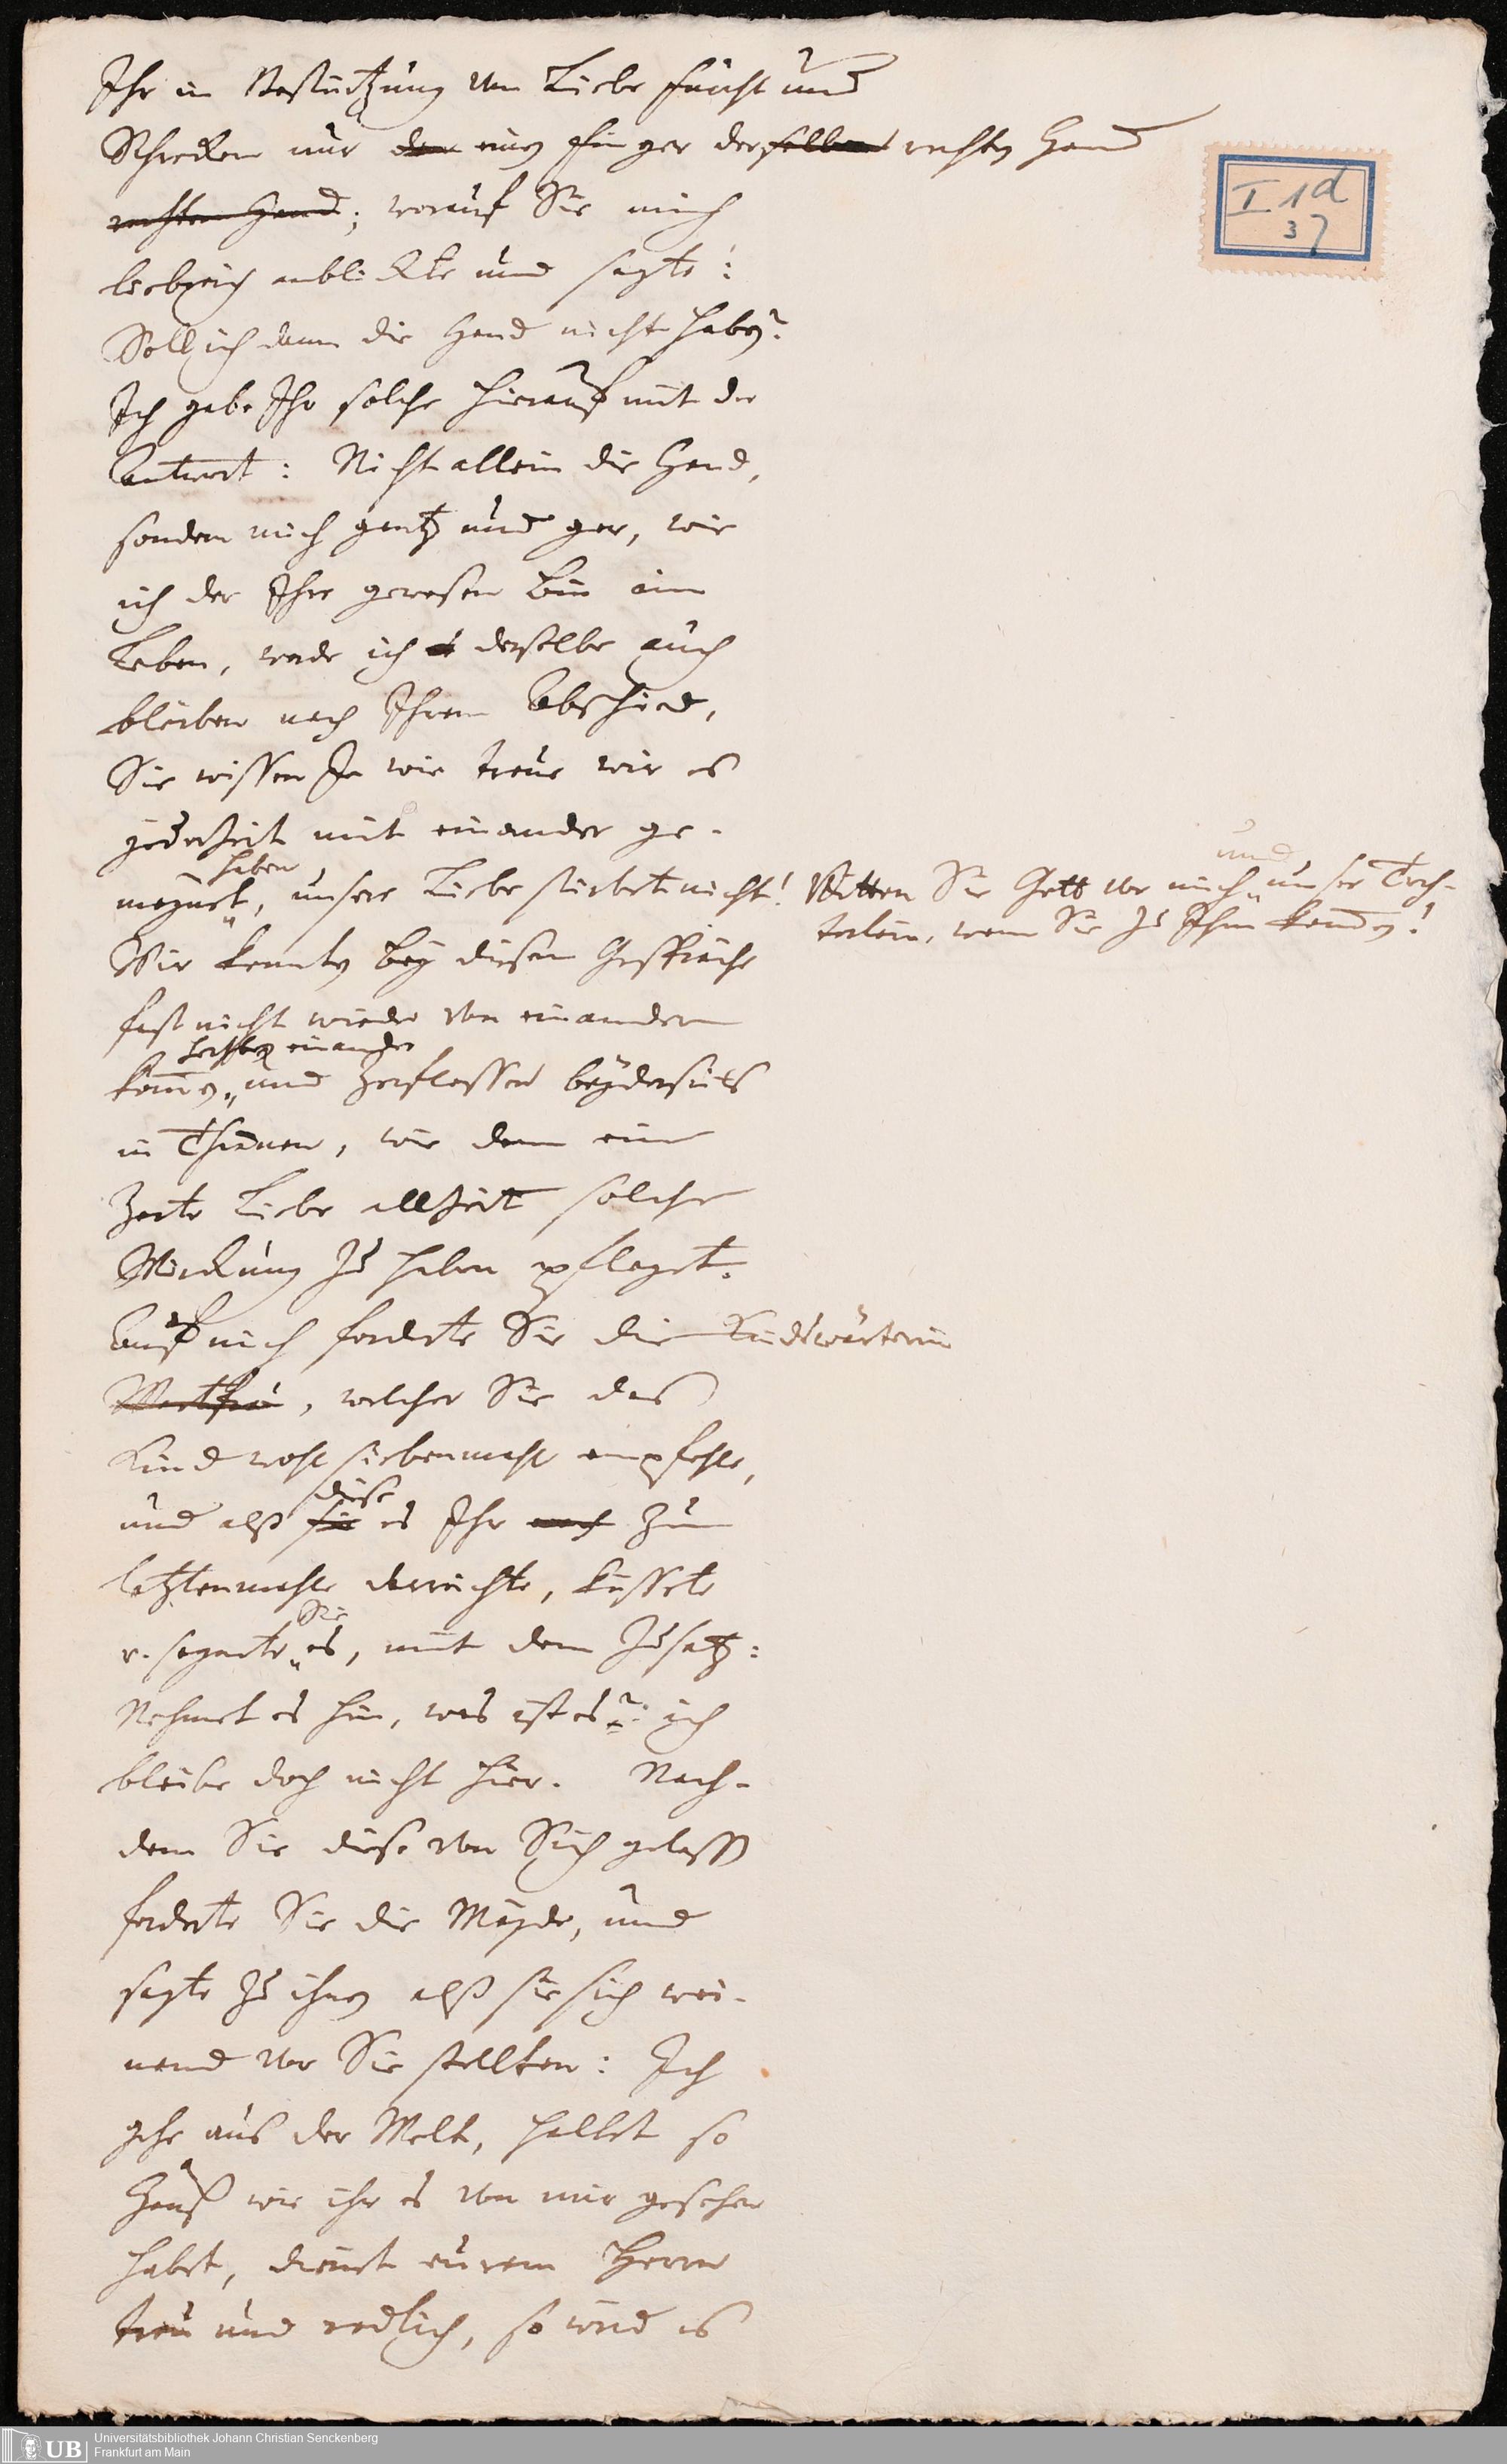 Ihr in Bestürtzung von Liebe Furcht und
Schrecken nur den einen Finger derselben rechten Hand
rechten Hand; worauf Sie mich
liebreich anblickte und sagte:
Soll ich dann die Hand nicht haben?
Ich gabe Ihr solche hierauf mit der
Antwort: Nicht allein die Hand,
sondern mich gantz und gar, wie
ich der Ihre gewesen bin im
Leben, werde ich derselbe auch
bleiben nach Ihrem Abschied,
Sie wissen Ja wie treue wir es
jederzeit mit einander ge-
haben
meynet, unsere Liebe stirbet nicht! Bitten Sie Gott vor mich und unser Töch-
terlein, wenn Sie zu Ihm kommen!
Wir konnten bey diesem Gespräche
fast nicht wieder von einandern
kommen, hertzten einander und zerflossen beyderseits
in Thränen, wie dann eine
zarte Liebe allzeit solche
Würckung zu haben pfleget.
Auf mich forderte Sie die Kindswärterin
Wartfrau, welcher Sie das
Kind wohl siebenmahl empfehle,
und alß sie diese es Ihr noch zum
letztenmahle darreichte, küssete
u. segnete Sie es, mit dem Zusatz:
Nehmet es hin, was ist es? ich
bleibe doch nicht hier. Nach-
dem Sie diese von Sich gelassen
forderte Sie die Mägde, und
sagte zu ihnen alß sie sich wei-
nend vor Sie stellten: Ich
gehe aus der Welt, haltet so
Hauß wie ihr es von mir gesehen
habet, dienet eurem Herrn
treu und redlich, so wird es
I 1d
37
UB
Universitätsbibliothek Johann Christian Senckenberg
Frankfurt am Main